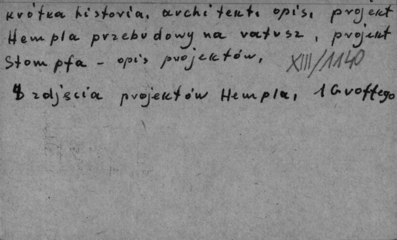 krótka historia, architekt. opis, projekt
Hempla przebudowy na ratusz, projekt
Stompfa - opis projektów,
XIII/1140
8 zdjęcia projektów Hempla, 1 Groffego